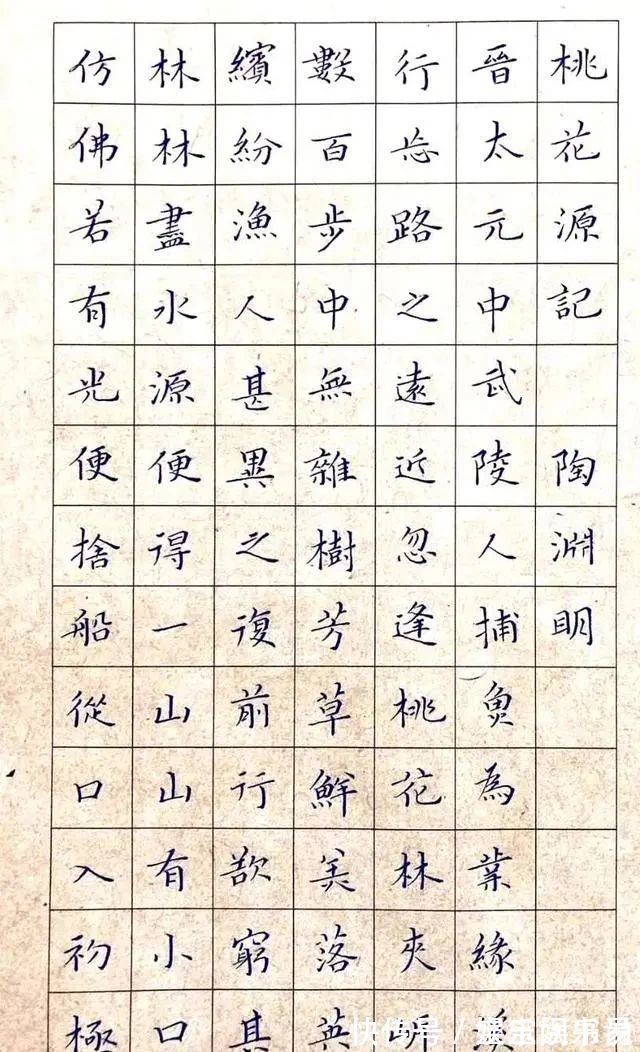 桃花源記 陶淵明
晉太元中武陵人捕魚為業緣溪
行忘路之遠近忽逢桃花林夾
數百步中無雜樹芳草鮮美落英
繽紛漁人甚異之復前行欲窮其
林林盡水源便得一山山有小口
仿佛若有光便捨船從口入初極
快传号 /